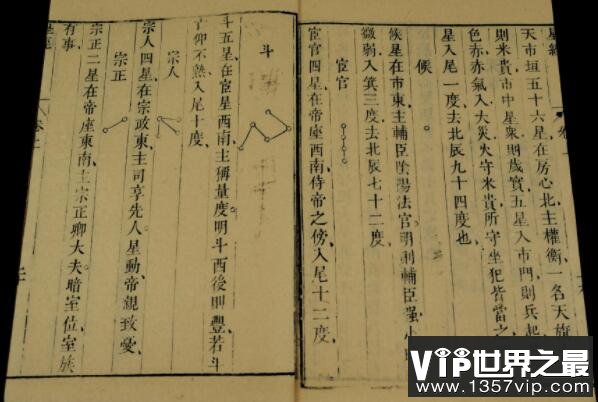 星經
天市垣五十六星在房心北主權衡一名天旗
則米貴市中星衆則歲實五星入市門則兵起
色赤赤氣入大災火守米貴所守坐犯皆當之
星入尾一度去北辰九十四度也
候
候星在市東主輔臣陰陽法官明則輔臣强小
微弱入箕三度去北辰七十二度
宦官
宦官四星在帝座西南侍帝之傍入尾十二度
斗
斗五星在宦星西南主稱量度明斗西後則豐若斗
仰不熟入尾十度
宗人
宗人四星在宗政東主司享先人星動帝親致憂
宗正
宗正二星在帝座東南主宗正卿大夫暗室位室族
有事
星經
卷上
二
VIP世界之最
www.1357vip.com